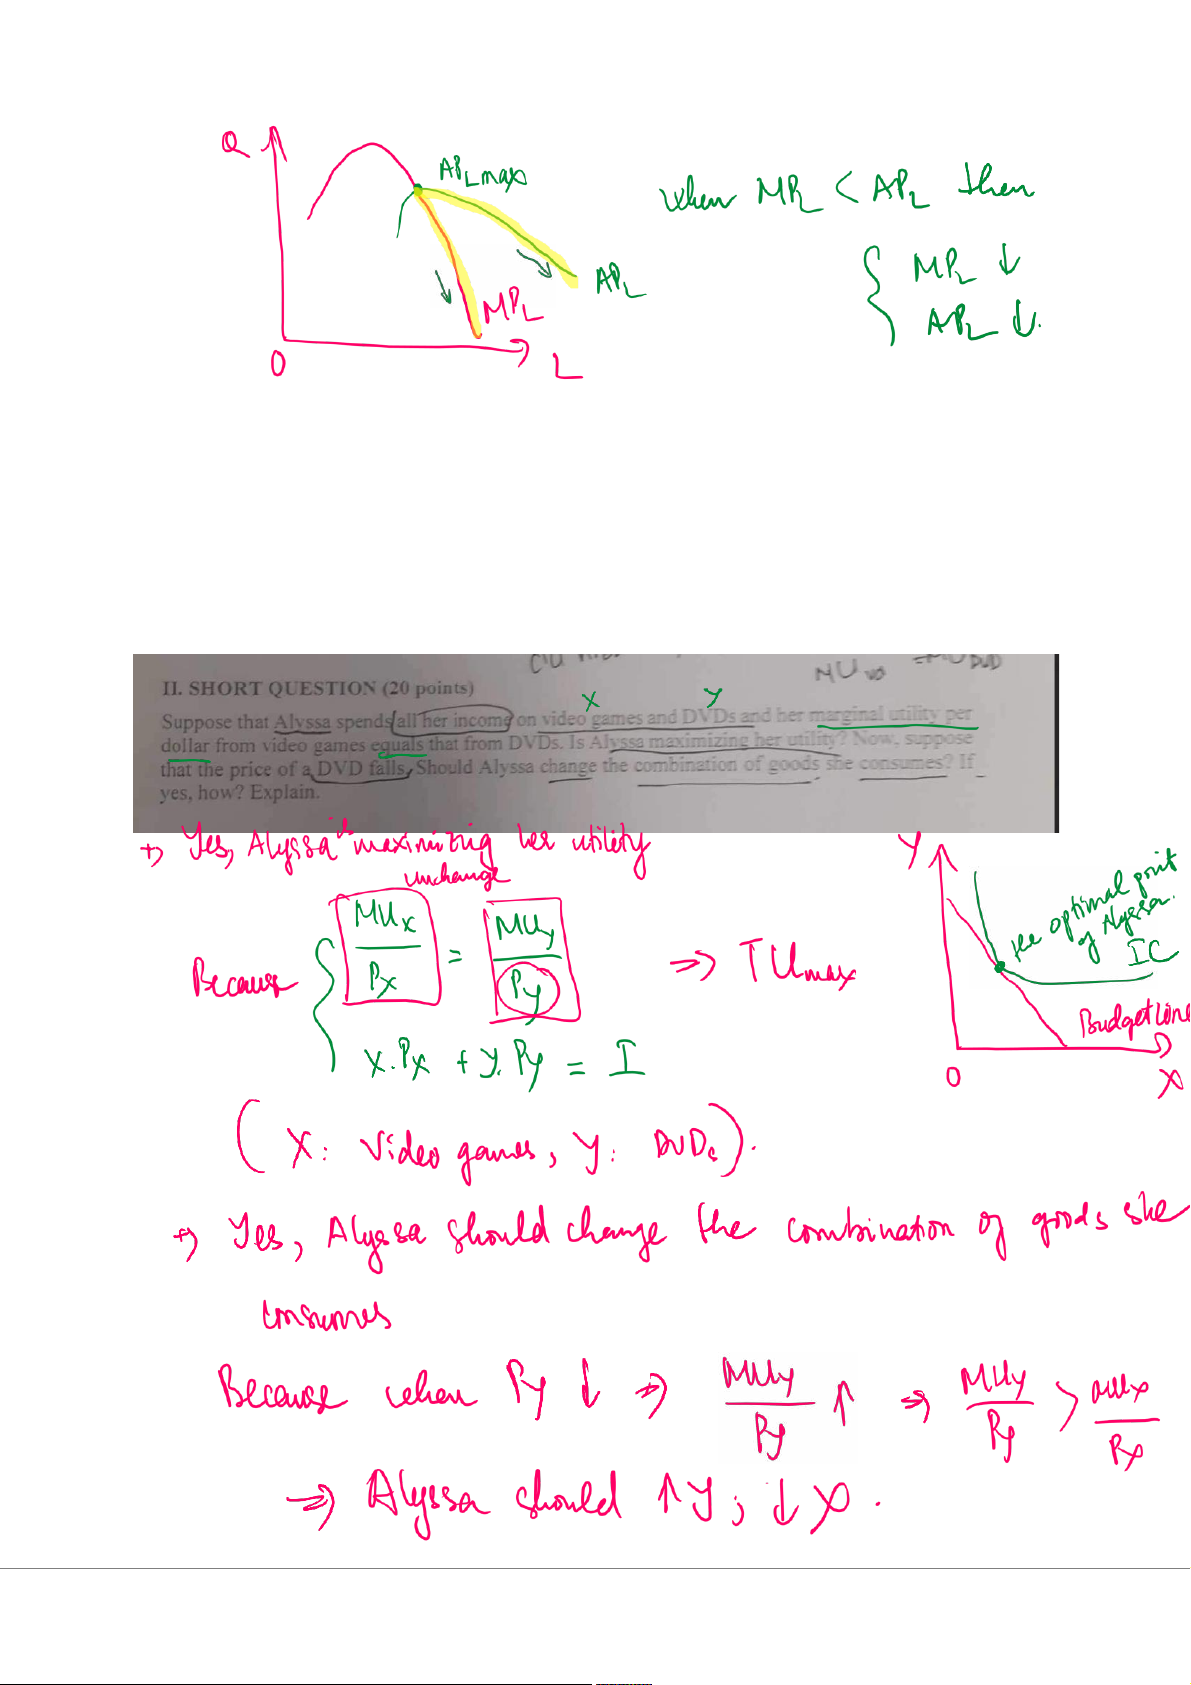 Q
AP_L max
when MP_L < AP_L then
MP_L ↓
AP_L
AP_L ↓.
MP_L
0
L
MU DVD
II. SHORT QUESTION (20 points)
X Y
Suppose that Alyssa spends all her income on video games and DVDs and her marginal utility per
dollar from video games equals that from DVDs. Is Alyssa maximizing her utility? Now, suppose
that the price of a DVD falls. Should Alyssa change the combination of goods she consumes? If
yes, how? Explain.
+) Yes, Alyssa is maximizing her utility
unchange
Because { MUx / Px = MUy / Py => TUmax
x.Px + y.Py = I
(X: Video games, Y: DVDs).
Y
the optimal point
of Alyssa.
IC
Budget line
0
X
+) Yes, Alyssa should change the combination of goods she
consumes
Because when Py ↓ => MUy / Py ↑ => MUy / Py > MUx / Px
=> Alyssa should ↑ Y; ↓ X.